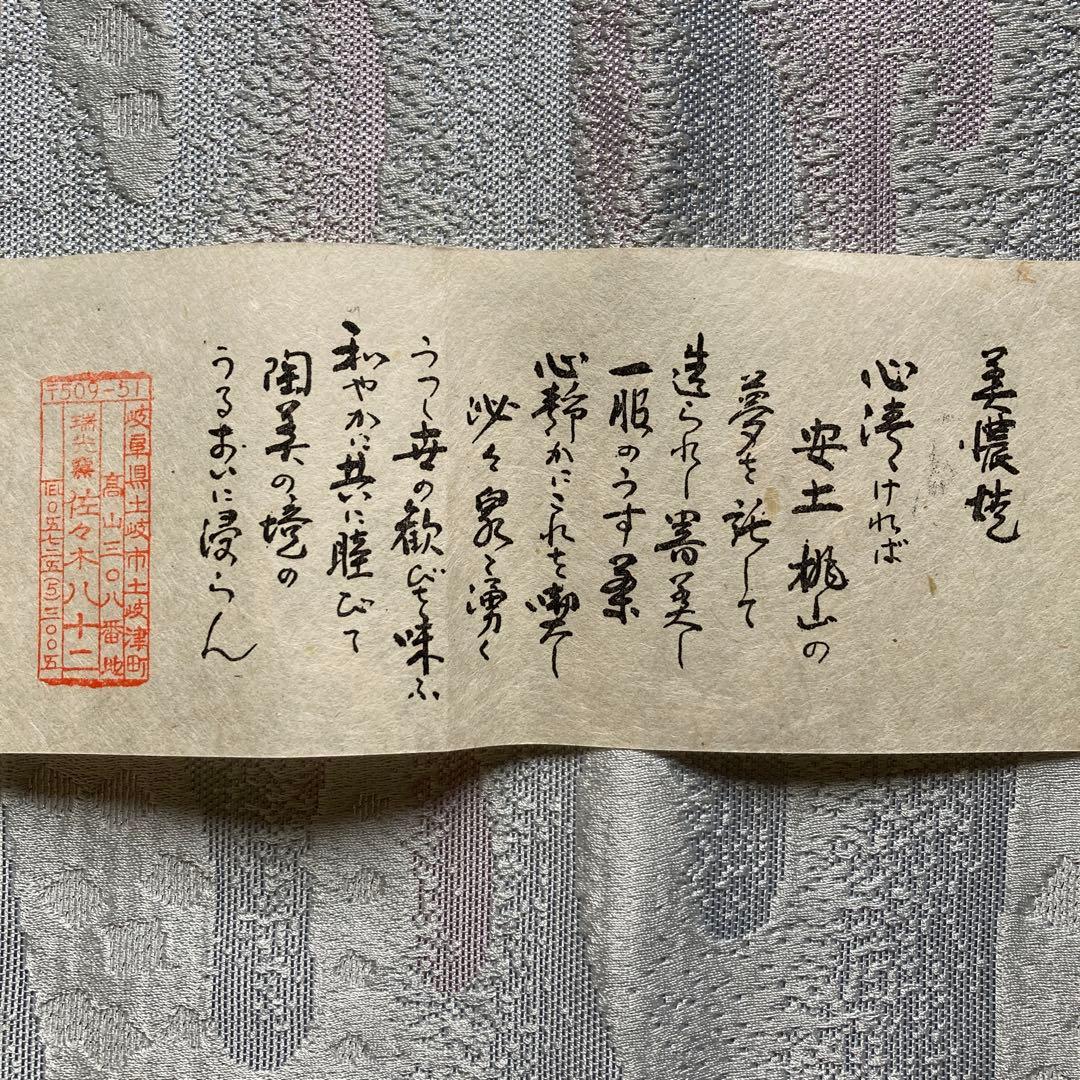 美濃焼
心清ければ
安土桃山の
夢を託して
造られし器美し
一服のうす茶
心静かにこれを喫し
泌々泉く湧く
うつゝ世の歓びを味ふ
和やかに共に睦びて
陶美の境の
うるおいに浸らん
〒509-51
岐阜県土岐市土岐津町
高山三〇八番地
佐々木八十二
〇五七二(五)三〇〇五